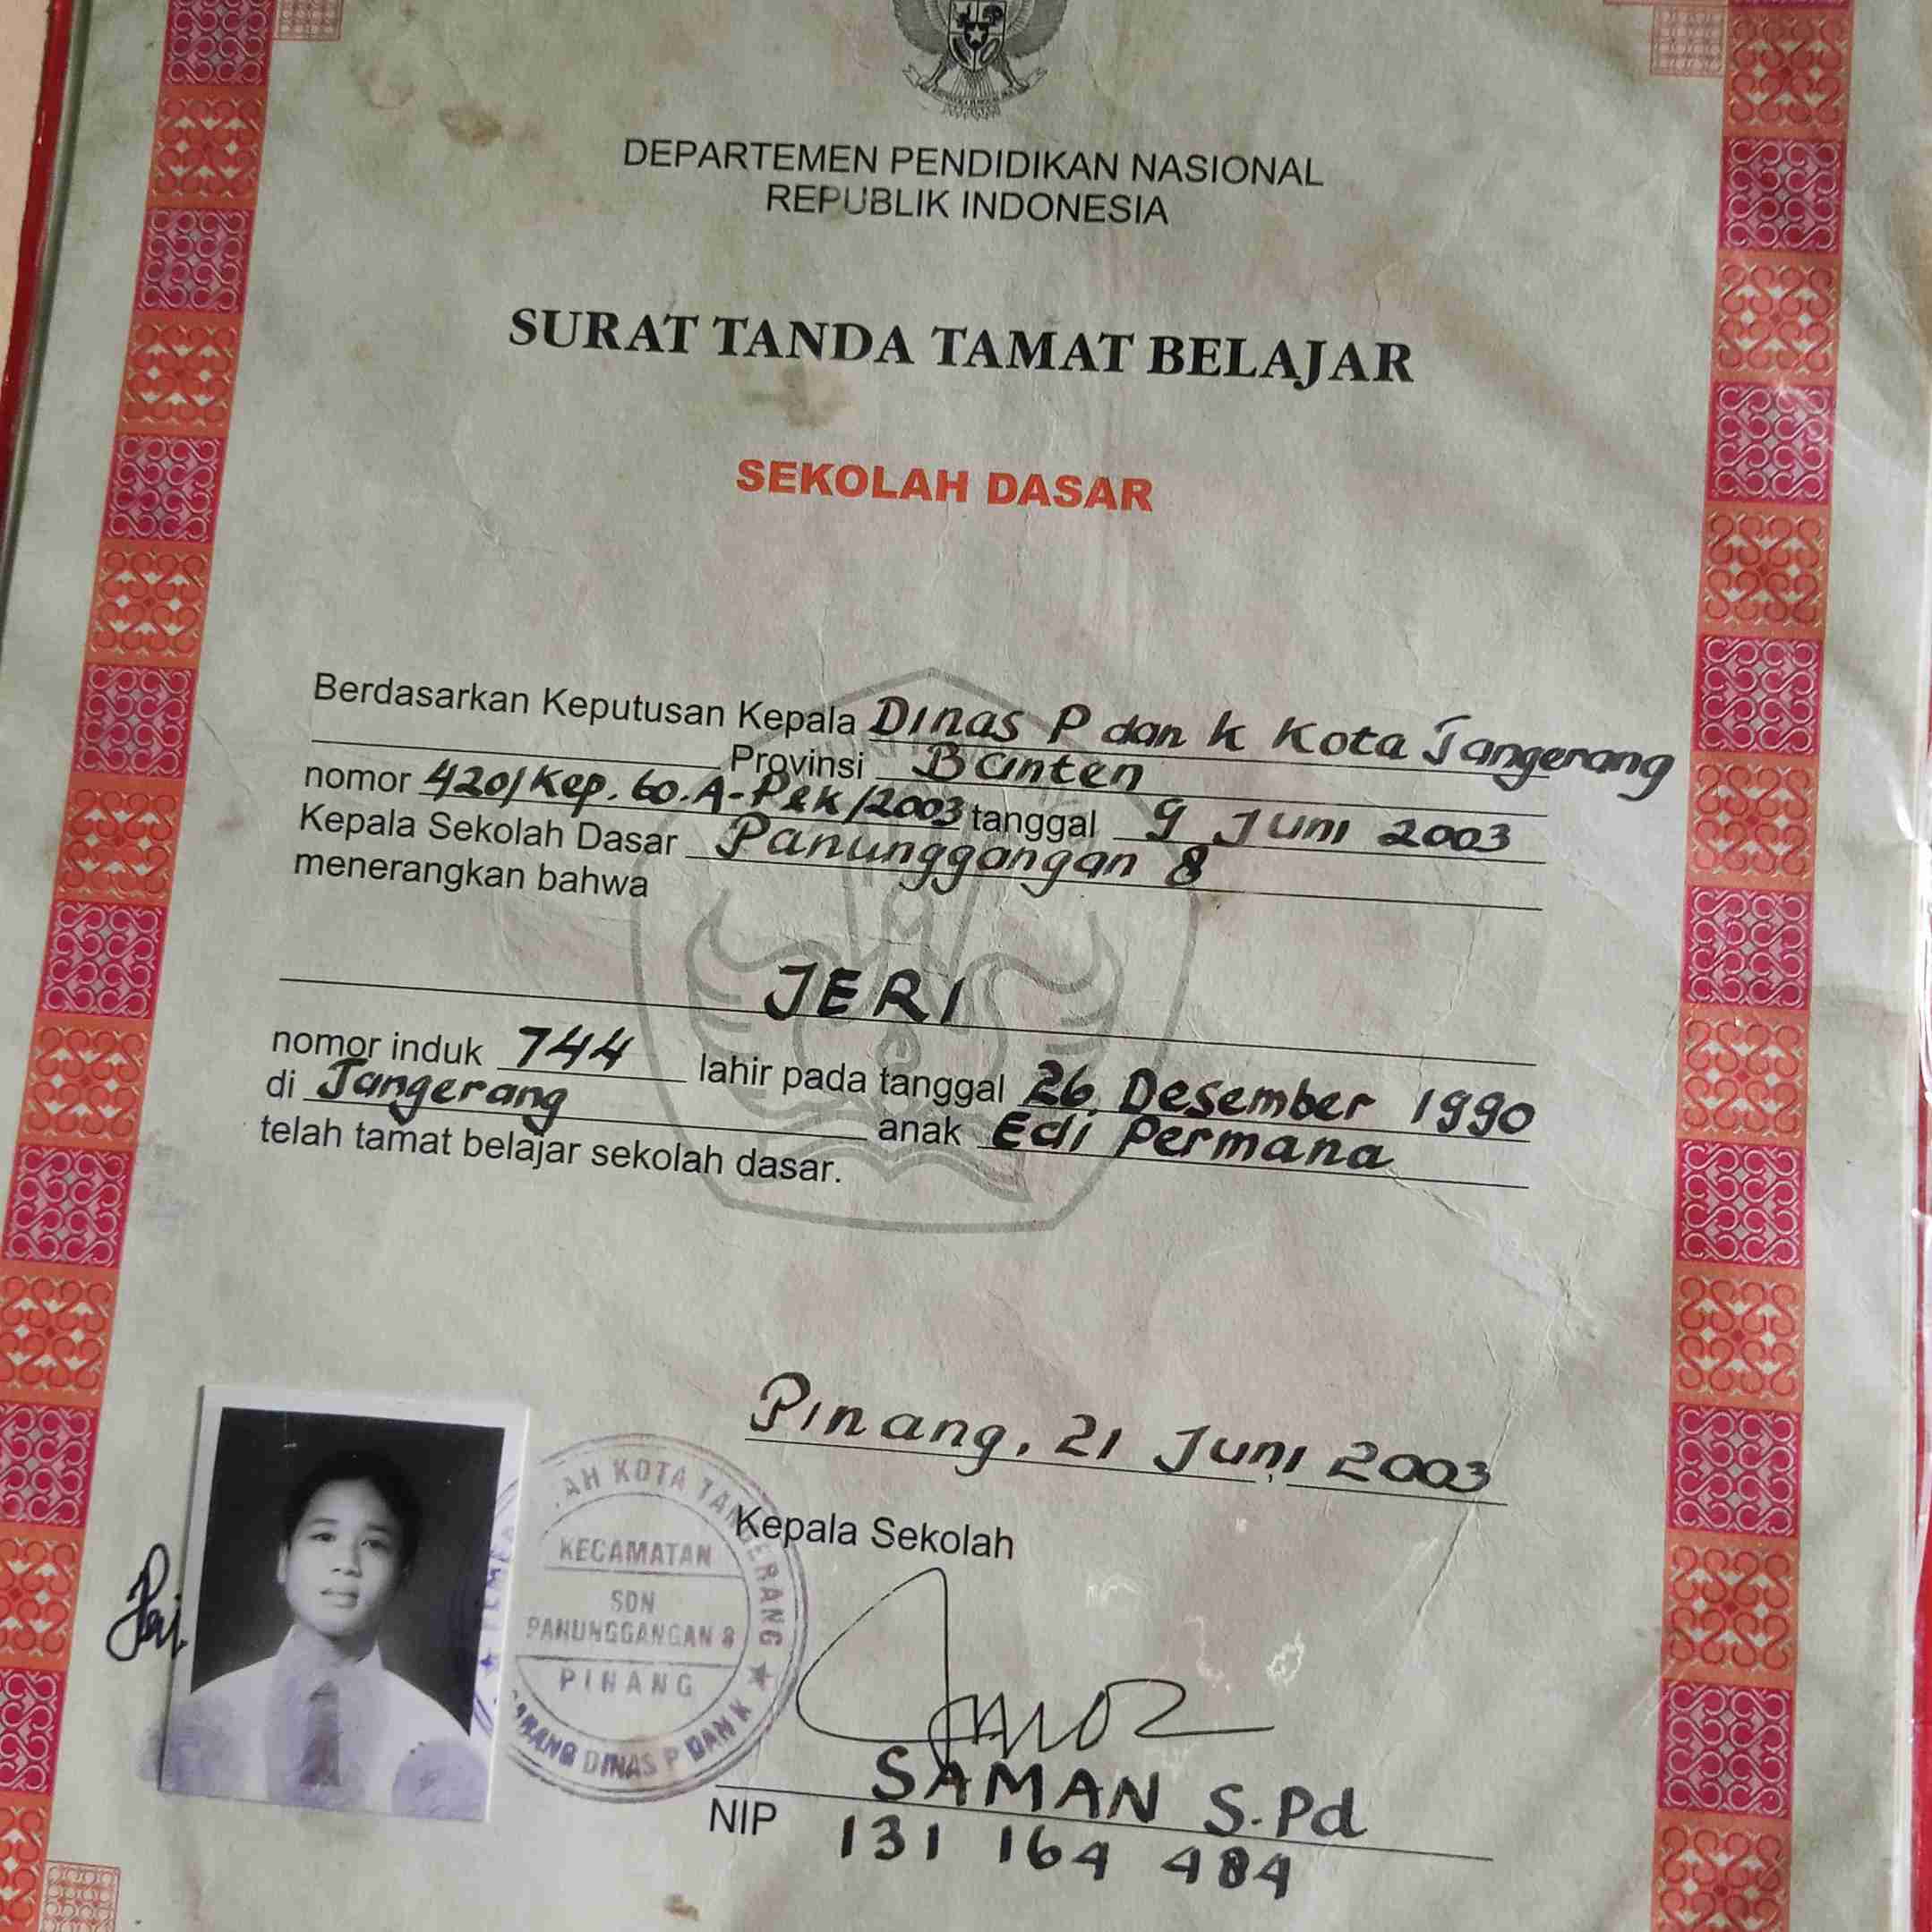 DEPARTEMEN PENDIDIKAN NASIONAL
REPUBLIK INDONESIA
SURAT TANDA TAMAT BELAJAR
SEKOLAH DASAR
Berdasarkan Keputusan Kepala Dinas P dan K Kota Tangerang
Provinsi Banten
nomor 420/Kep.60.A-P&K/2003 tanggal 9 Juni 2003
Kepala Sekolah Dasar Panunggangan 8
menerangkan bahwa
JERI
nomor induk 744 lahir pada tanggal 26 Desember 1990
di Tangerang anak Edi Permana
telah tamat belajar sekolah dasar.
Pinang, 21 Juni 2003
Kepala Sekolah
KOTA TANGERANG
KECAMATAN
SDN
PANUNGGANGAN 8
PINANG
DINAS P DAN K
SAMAN S.Pd
NIP 131 164 484